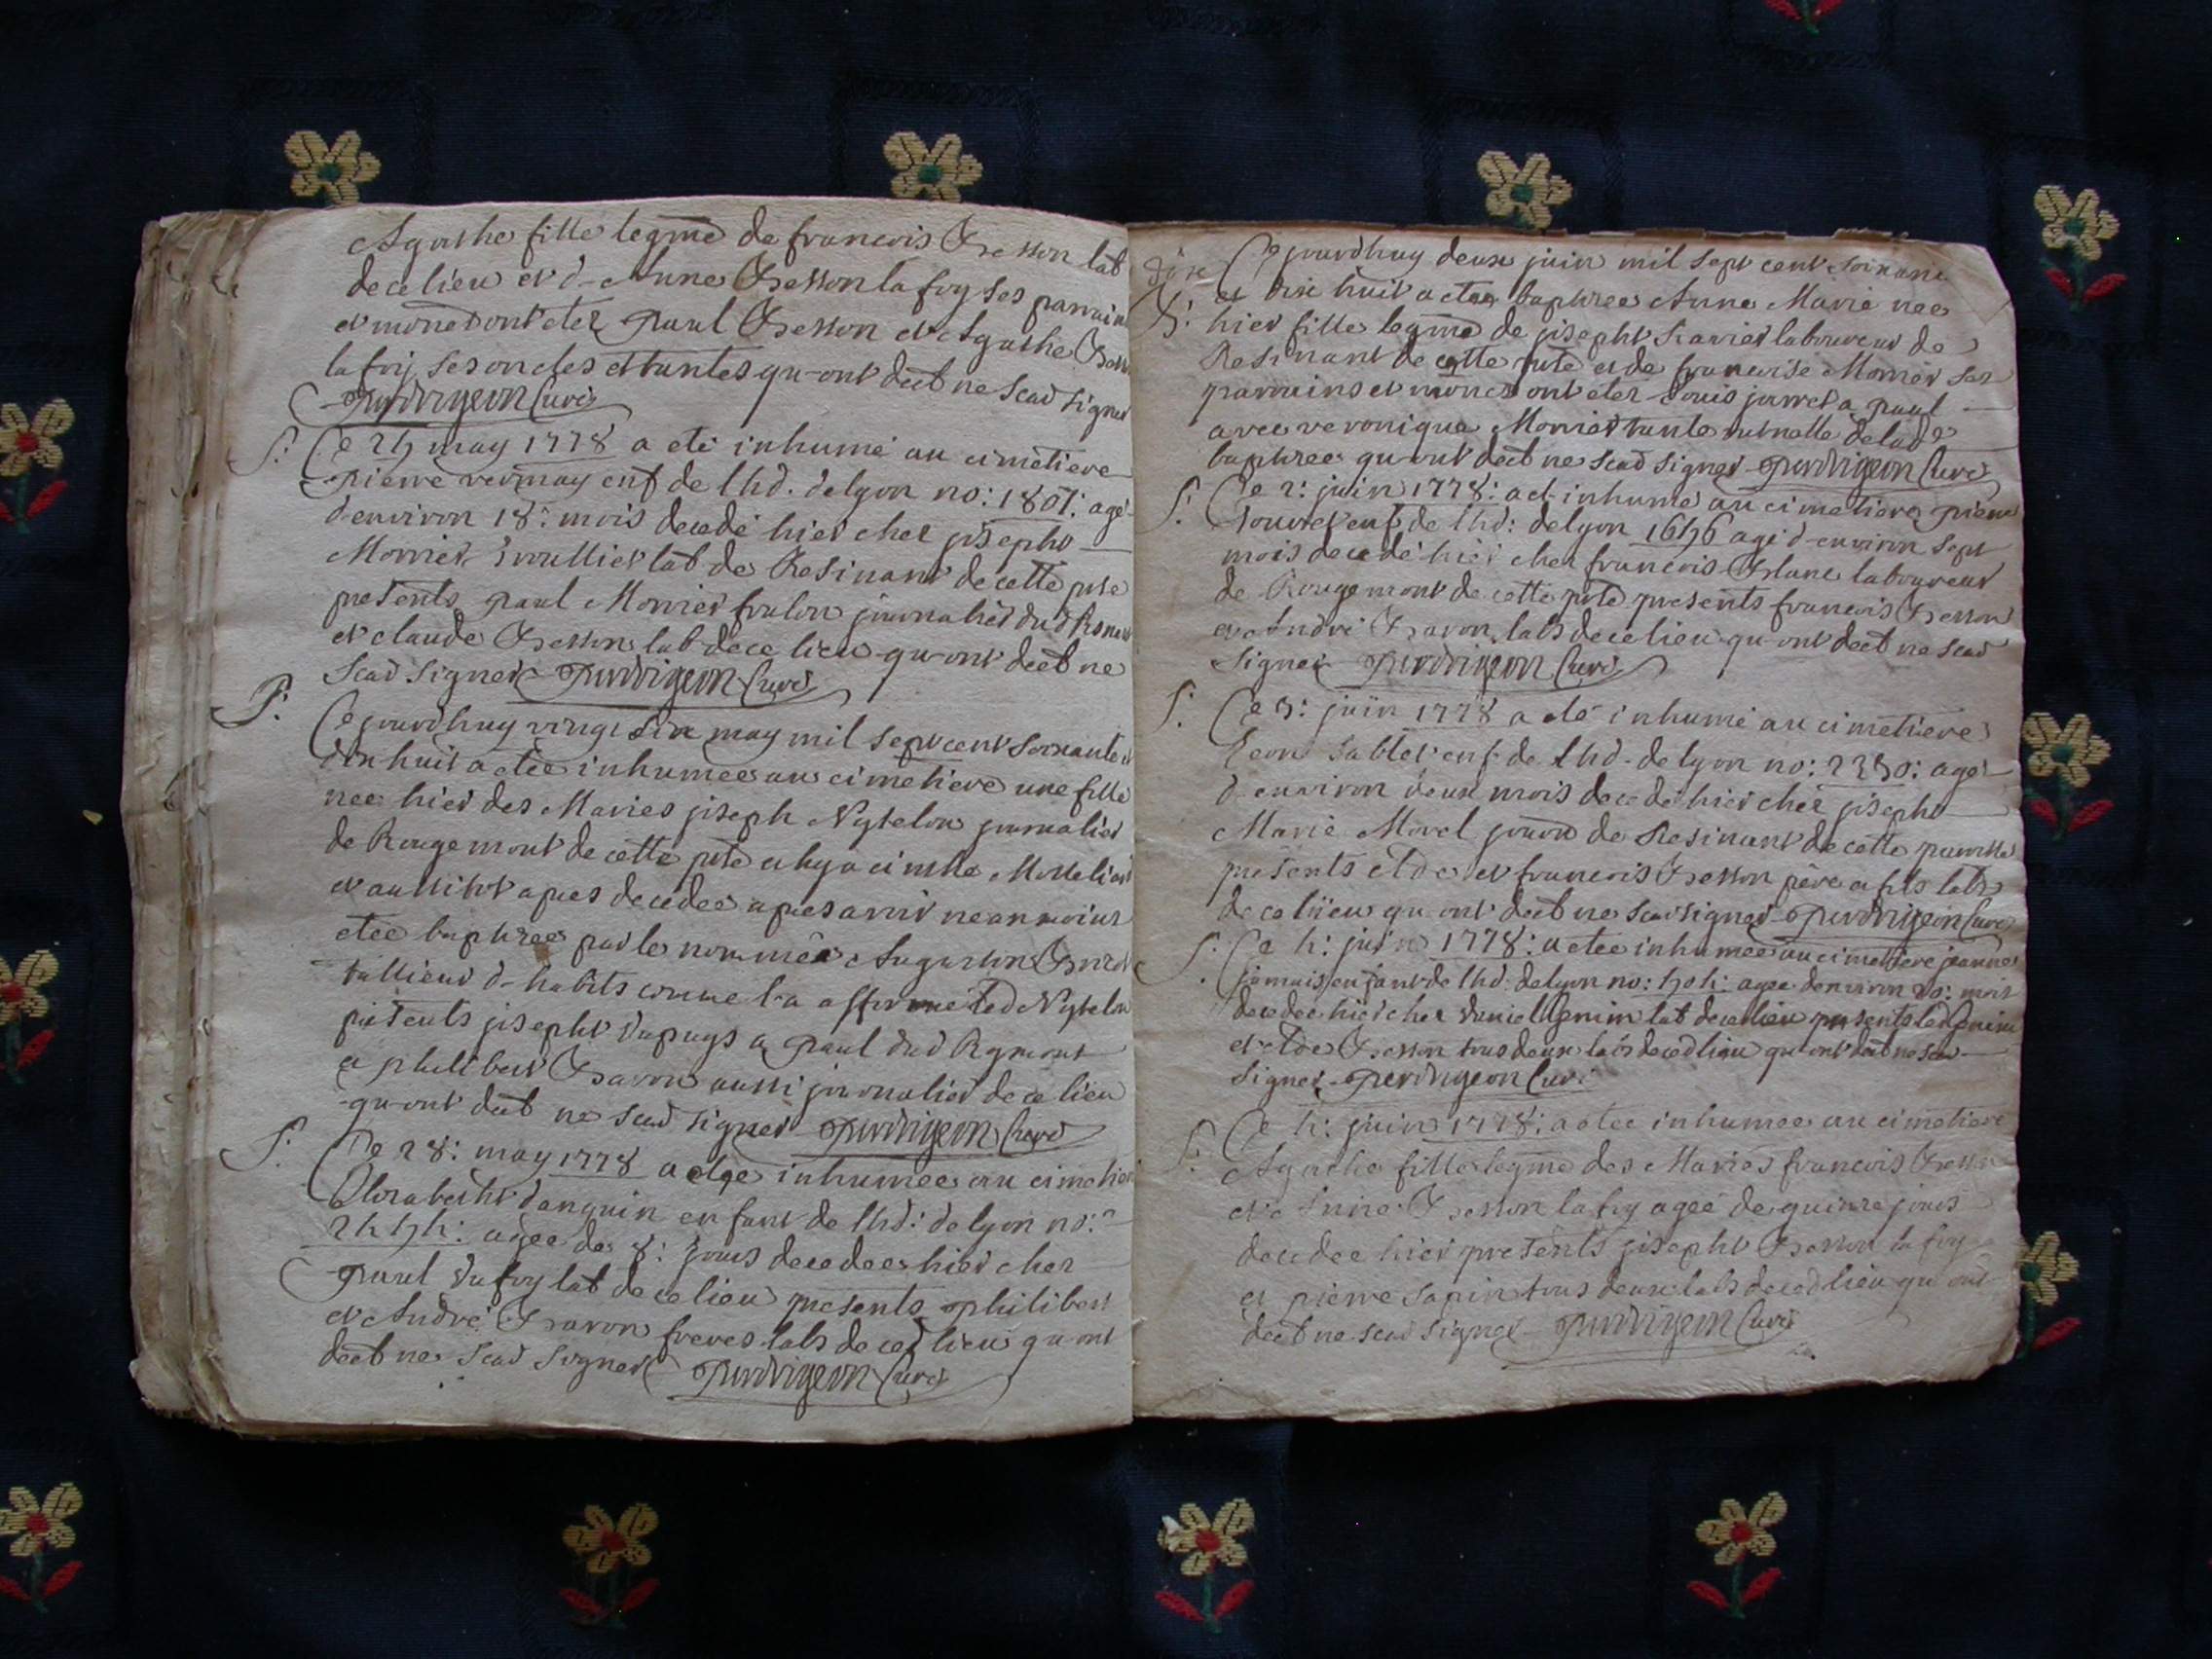 Agathe fille legme de francois Besson lab
de ce lieu et d-Anne Besson lafoy ses parrain
et mone dont eter paul Besson et Agathe Besson
lafoy ses oncles et tantes qu-ont dect ne scav signer
perdrigeon Curé
S: Ce 24 may 1778 a eté inhumé au cimetiere
pierre vermay enf de lhd. de lyon no: 1801: agé
d-environ 18: mois decedé hier cher joseph
Monnier lab de Resinant de cette pse
presents paul Monnier foulon journalier dud
et claude Besson lab de ce lieu qu-ont dect ne
Scav signer perdrigeon Curé
S: Ce jourdhuy vingt six may mil sept cent soixante et
dix huit a etee inhumee au cimetiere une fille
nee hier des Maries joseph Nytelon journalier
de Rougemont de cette pse et hyacinthe
et aussitot apres decedee apres avoir neanmoins
etee baptisee par le nommée Augustin
tallieur d-habits comme l-a affirmé led Nytelon
presents joseph dupuys a paul dud Rgmont
et philibert Bavon aussi journalier de ce lieu
qu-ont dect ne scav signer perdrigeon Curé
S: Ce 28: may 1778 a etee inhumee au cimetier
Elizabeth danguin enfant de lhd: de lyon no:
2474: agee de 8: jours decedee hier cher
paul dufoy lab de ce lieu presents philibert
et André Bavon freres labs de ced lieu qu ont
dect ne scav signer perdrigeon Curé
Ce jourdhuy deux juin mil sept cent soixante
et dix huit a etee baptisee Anne Marie nee
hier fille legme de joseph laboureur de
Resinant de cette pse et de francoise Monnier ses
parrains et mones ont eter Louis a paul
avec veronique Monnier tante de lad
baptisee qu ont dect ne scav signer perdrigeon Curé
S: Ce 2: juin 1778: a et inhumé au cimetiere pierre
enf de lhd: de lyon 1646 agé d-environ sept
mois decedé hier cher francois Blanc laboureur
de Rougemont de cette pse presents francois Besson
et André Bavon labs de ce lieu qu-ont dect ne scav
signer perdrigeon Curé
S: Ce 3: juin 1778 a eté inhumé au cimetiere
Leon Sablet enf de lhd-de lyon no: 2350: agé
d-environ deux mois decedé hier cher joseph
Marie Morel de Resinant de cette paroisse
presents et francois Besson père et fils labs
de ce lieu qu-ont dect ne scav signer perdrigeon Curé
S: Ce 4: juin 1778: a etee inhumee au cimetiere jeanne
jamais enfant de lhd: de lyon no: 404: agee denviron 20: mois
decedee hier cher daniel Genin lab de ce lieu presents led Genin
et Besson tous deux labs de ced lieu qu-ont dect ne scav
signer perdrigeon Curé
S: Ce 4: juin 1778: a etee inhumee au cimetiere
Agathe fille legme des Maries francois Besson
et Anne Besson lafoy agee de quinze jours
decedee hier presents joseph Besson lafoy
et pierre Sapin tous deux labs de ced lieu qu ont
dect ne scav signer perdrigeon Curé